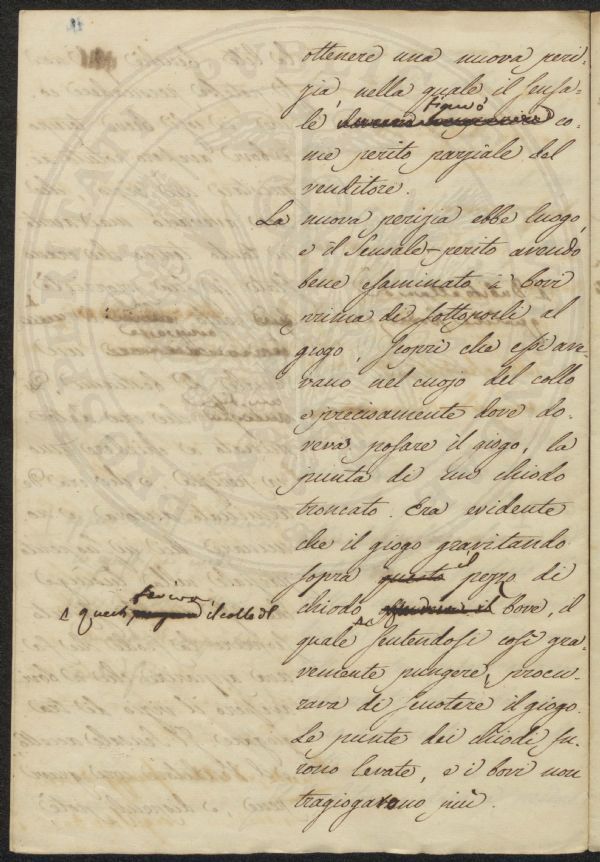 ottenere una nuova peri-
zia, nella quale il sensa-
le figurò co-
me perito parziale del
venditore.
La nuova perizia ebbe luogo,
e il Sensale-perito avendo
bene esaminato i bovi
prima di sottoporli al
giogo, scoprì che essi ave-
vano nel cuojo del collo
e precisamente dove do-
veva posare il giogo, la
punta di un chiodo
troncato. Era evidente
che il giogo gravitando
sopra questo il pezzo di
chiodo bove, il
feriva
questi il collo del
quale sentendosi così gra-
vemente pungere, procu-
rava di scuotere il giogo.
Le punte dei chiodi fu-
rono levate, e i bovi non
tragiogarono più.